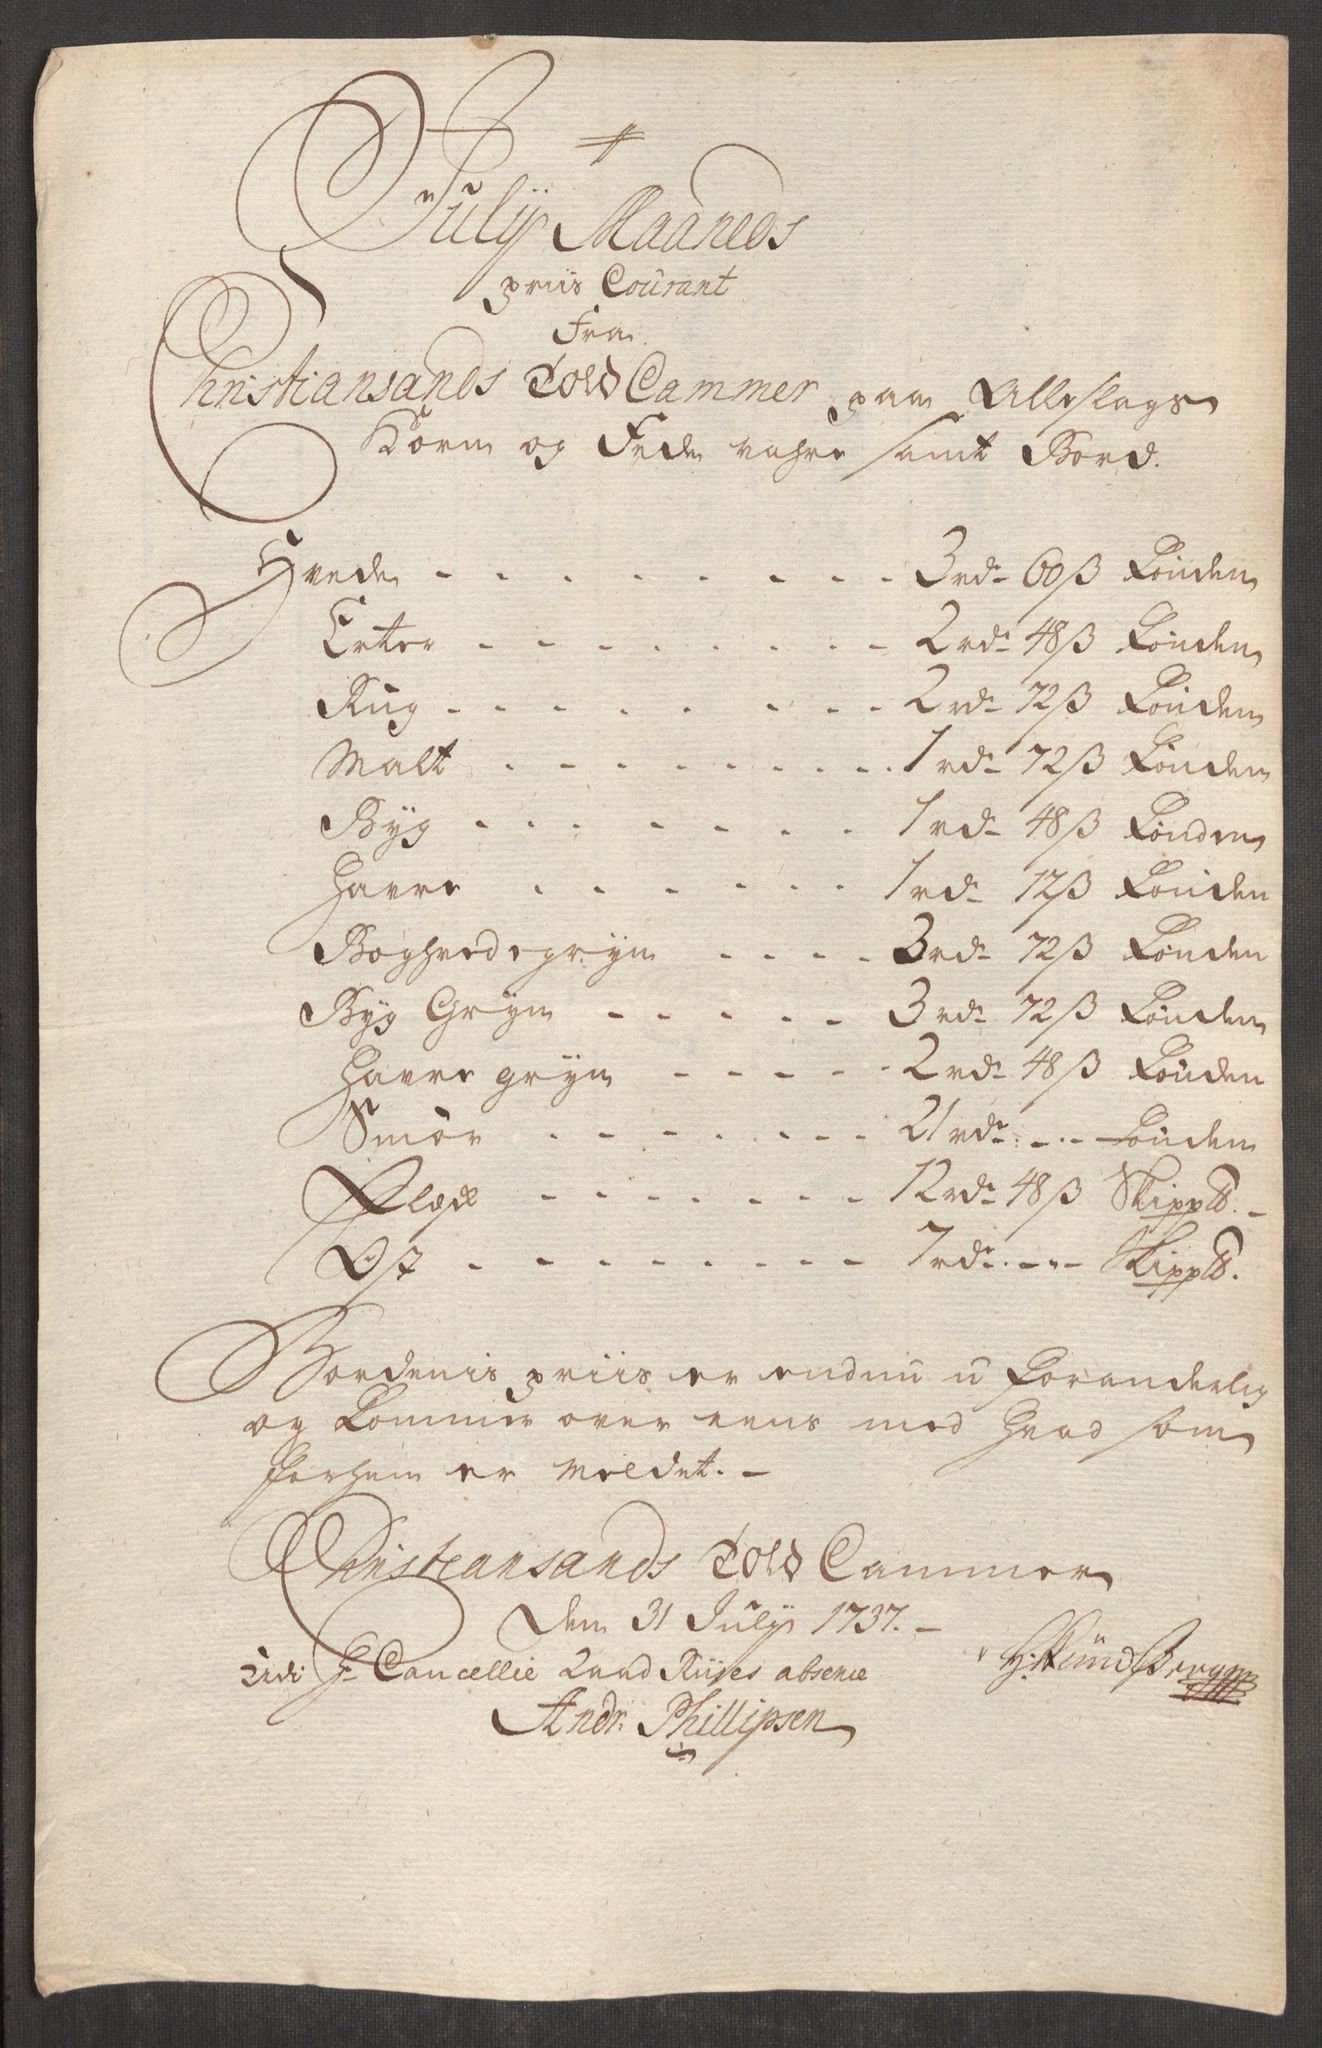 Julij Maaneds
priis Courant
Fra
Christiansands Told Cammer paa Alleslags
Korn og Fede vahre samt Bord.
Hvede - - - - - - - - 3 rdr 60 ß Tönden
Erter - - - - - - - - 2 rdr 48 ß Tönden
Rug - - - - - - - - 2 rdr 72 ß Tönden
Malt - - - - - - - - 1 rdr 72 ß Tönden
Byg - - - - - - - 1 rdr 48 ß Tönden
Havre - - - - - - 1 rdr 12 ß Tönden
Boghvedegryn - - - - 3 rdr 72 ß Tönden
Byg Gryn - - - - - 3 rdr 72 ß Tönden
Havre gryn - - - - - 2 rdr 48 ß Tönden
Smör - - - - - - - 21 rdr - - Tönden
Flesk - - - - - - - 12 rdr 48 ß Skipp℔. -
Ost - - - - - - - - 7 rdr - - - Skipp℔.
Bordenis priis er endnu u foranderlig
og kommer over eens med hvad som
forhen er meldet. -
Christiansands Told Cammer
den 31 Julij 1737. -
Udi Hr Cancellie Raad Riises absence
Andr: Phillipsen